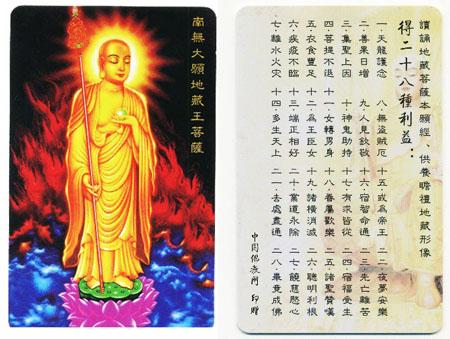 南無大願地藏王菩薩
讀誦地藏菩薩本願經、供養瞻禮地藏形像
得二十八種利益：
一·天龍護念 八·無盜賊厄 十五·或為帝王 二二·夜夢安樂
二·善果日增 九·人見欽敬 十六·宿智命通 二三·先亡離苦
三·集聖上因 十·神鬼助持 十七·有求皆從 二四·宿福受生
四·菩提不退 十一·女轉男身 十八·眷屬歡樂 二五·諸聖讚嘆
五·衣食豐足 十二·為王臣女 十九·諸橫消滅 二六·聰明利根
六·疾疫不臨 十三·端正相好 二十·業道永除 二七·饒慈愍心
七·離水火災 十四·多生天上 二一·去處盡通 二八·畢竟成佛
中國佛教 印贈